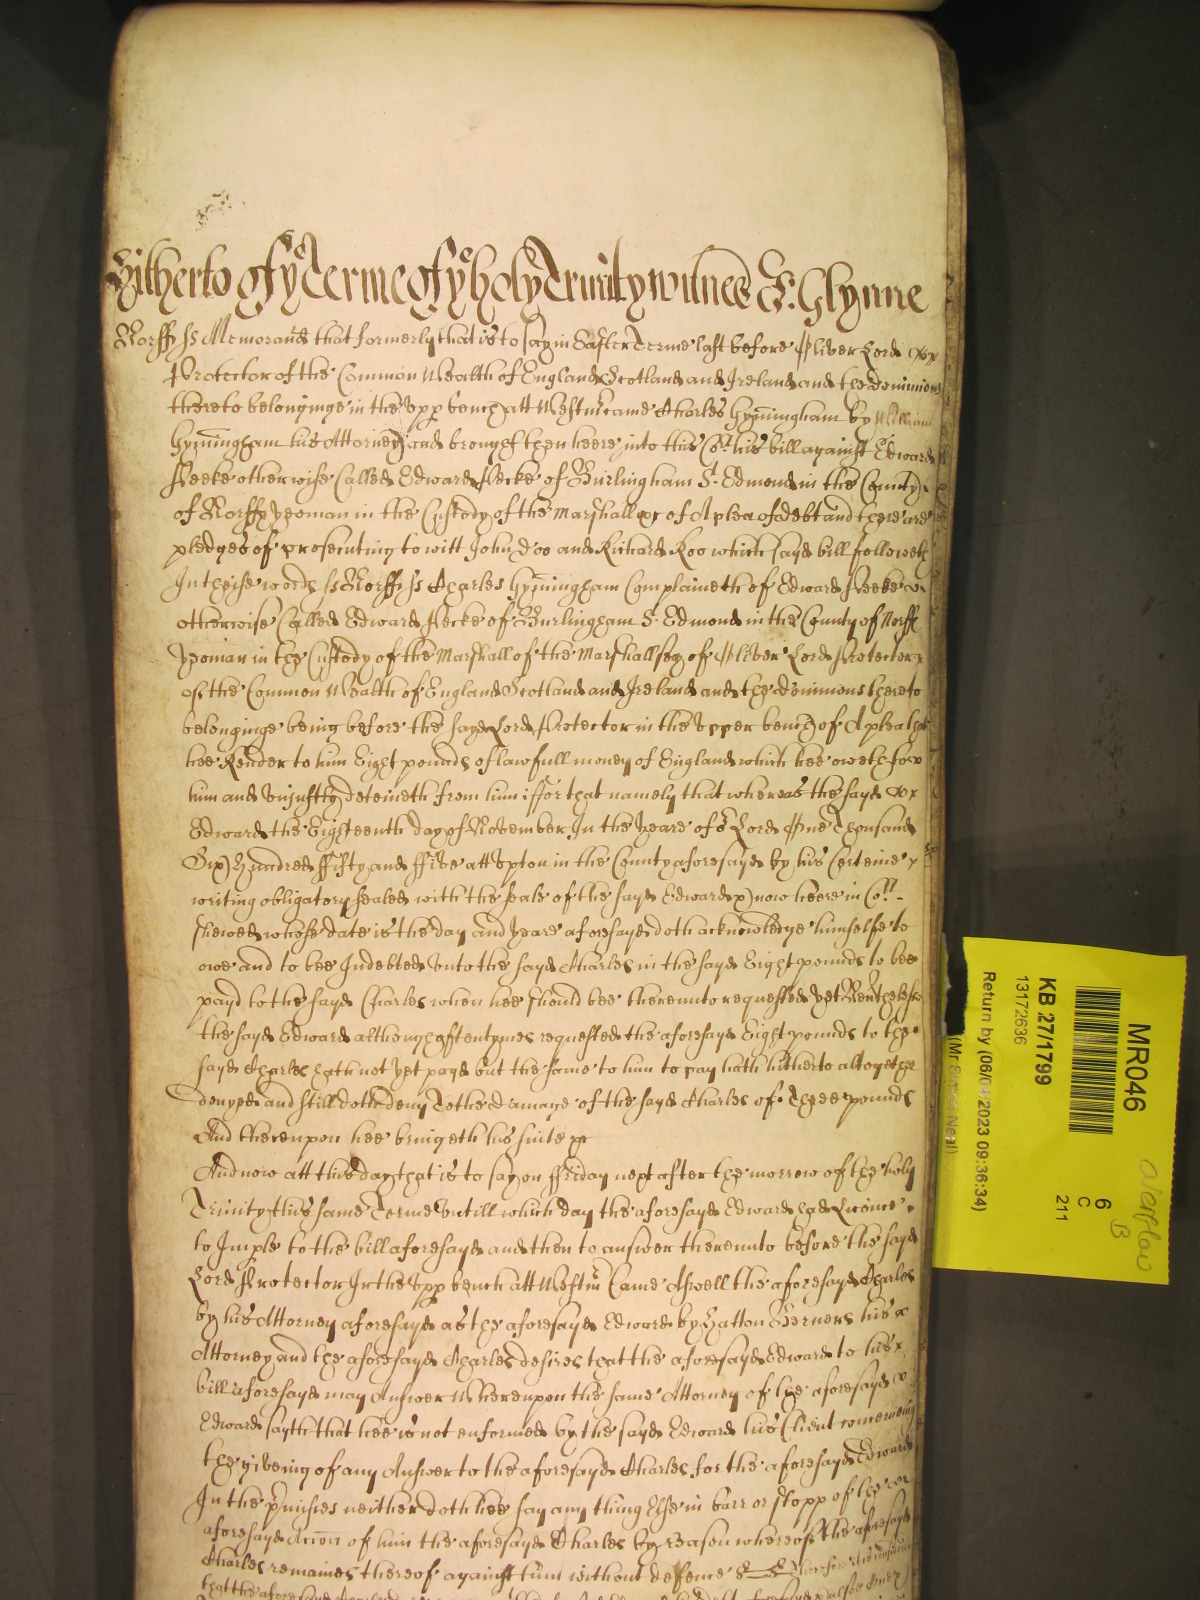 Hitherto of ye Terme of ye holy Trinity witnes J: Glynne
Norff ss Memorand that formerly that is to say in Easter Terme last before Oliver Lord
Protector of the Common Wealth of England Scotland and Ireland and the dominions
thereto belonginge in the Upp bench att Westm came Charles Hyrningham by William
Hyrningham his Attorney and brought then heere into this Cort his bill against Edward
Peeke otherwise Called Edward Pecke of Burlingham St Edmond in the County
of Norff yeoman in the Custody of the Marshall &c of A plea of debt and there are
pledges of prosecuting to witt John Doo and Richard Roo which sayd bill followeth
In theise words ss Norff ss Charles Hyrningham Complaineth of Edward Peeke
otherwise Called Edward Pecke of Burlingham St Edmond in the County of Norff
yeoman in the Custody of the Marshall of the Marshallsey of Oliver Lord Protector
of the Common Wealth of England Scotland and Ireland and the dominions thereto
belonginge being before the sayd Lord Protector in the Upper bench of A plea that
hee Render to him Eight pounds of lawfull money of England which hee oweth
him and Unjustly deteineth from him ffor that namely that whereas the sayd
Edward the Eighteenth day of November In the yeare of or Lord One Thousand
Six Hundred ffifty and ffive att Upton in the County aforesayd by his Certeine
writing obligatory sealed with the seale of the sayd Edward & now heere in Cort
shewed whose date is the day and yeare aforesayd doth acknowledge himselfe to
owe and to bee Indebted Unto the sayd Charles in the sayd Eight pounds to bee
payd to the sayd Charles when hee should bee thereunto requested yet Nevthelesse
the sayd Edward although oftentymes requested the aforesayd Eight pounds to the
sayd Charles hath not yet payd but the same to him to pay hath hitherto altogether
denyed and still doth deny To the damage of the sayd Charles of Three pounds
And thereupon hee bringeth his suite &c
And now att this day that is to say on ffriday next after the morrow of the holy
Trinity this same Terme Untill which day the aforesayd Edward had Licence
to Imple to the bill aforesayd and then to answer thereunto before the sayd
Lord Protector In the Upp bench att Westm Came Aswell the aforesayd Charles
by his Attorney aforesayd as the aforesayd Edward by Hatton Berners his
Attorney and the aforesayd Charles desires that the aforesayd Edward to his
bill aforesayd may Answer Whereupon the same Attorney of the aforesayd
Edward sayth that hee is not enformed by the sayd Edward his Client concerning
the giveing of any Answer to the aforesayd Charles for the aforesayd Edward
In the pmisses neither doth hee say any thing Else in barr or stopp of the
aforesayd Accon of him the aforesayd Charles by reason whereof the aforesayd
Charles remaines thereof against him without defence Therefore it is
that the aforesayd
MR046
6
C
211
KB 27/1799
13172636
Return by (06/04/2023 09:36:34)